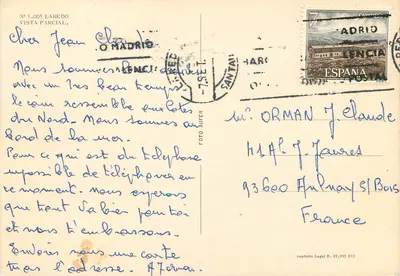 Nº 1.005 LAREDO
VISTA PARCIAL.
Cher Jean Claude
Nous sommes
avec un très beau temps
le coin ressemble aux Côtes
du Nord. Nous sommes au
bord de la mer.
Pour ce qui est du téléphone
impossible de téléphoner en
ce moment. nous espérons
que tout va bien pour toi
et nous t'embrassons.
Envoies nous une carte
tu as l'adresse.
FOTO
O MADRID
LENCIA
SANTAN
ADRID
LENCIA
POSTAL
7
ESPAÑA
Mr ORMAN J. Claude
41 Al. J. Jaures
93600 Aulnay S/Bois
France